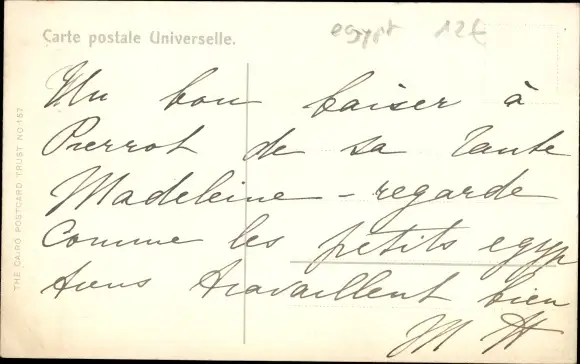 Carte postale Universelle.
egypt 12€
Un bon baiser à
Pierrot de sa Tante
Madeleine - regarde
comme les petits egyp
tiens travaillent bien
M H
THE CAIRO POSTCARD TRUST NO. 157